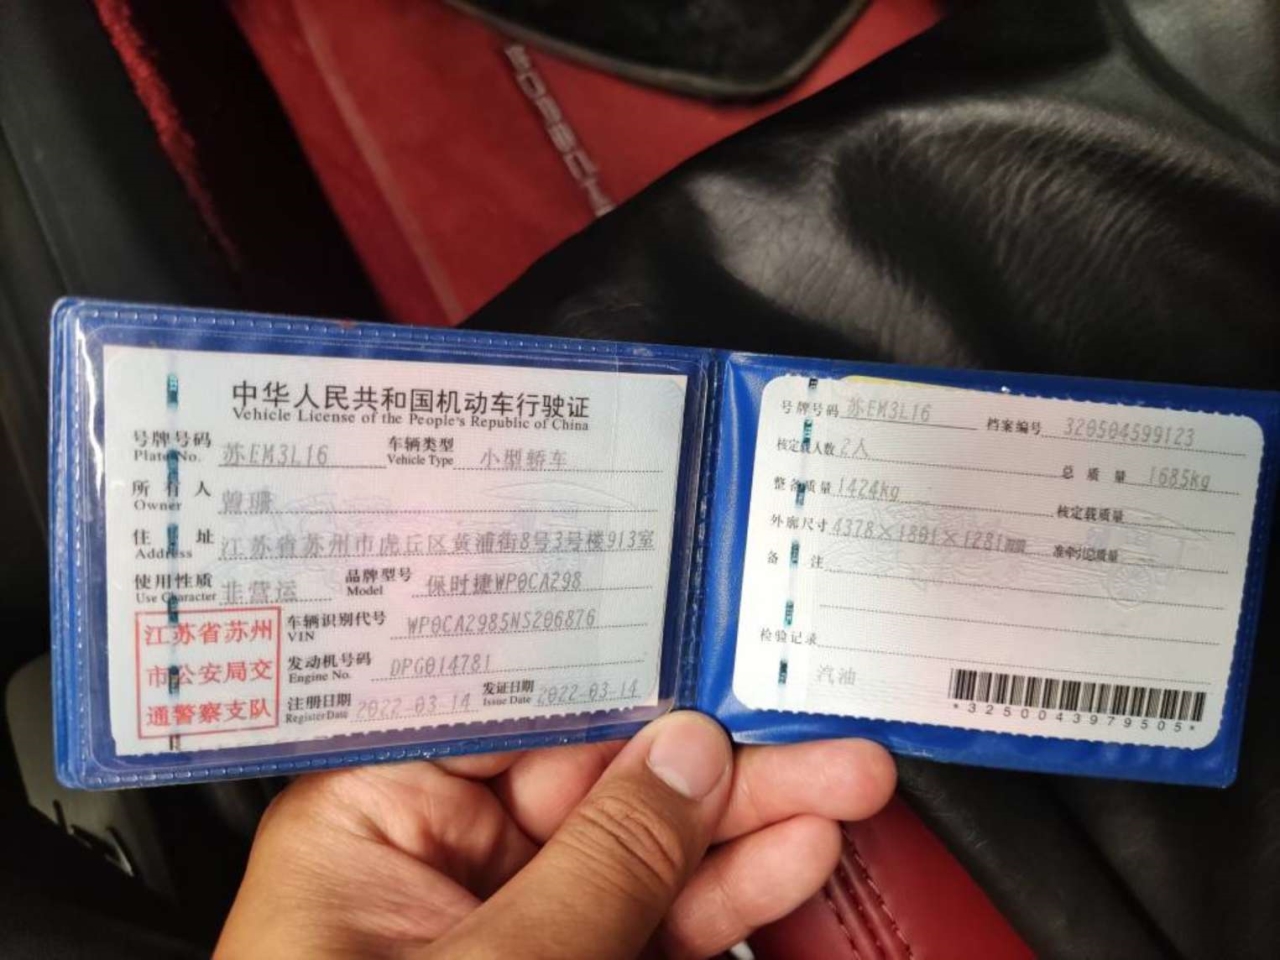 PORSCHE
中华人民共和国机动车行驶证
Vehicle License of the People's Republic of China
号牌号码 苏EM3L16 车辆类型 小型轿车
Plate No. Vehicle Type
所有人 曾珊
Owner
住址 江苏省苏州市虎丘区黄浦街8号3号楼913室
Address
使用性质 非营运 品牌型号 保时捷WP0CA298
Use Character Model
江苏省苏州
市公安局交
通警察支队
车辆识别代号 WP0CA2985NS206876
VIN
发动机号码 DPG014781
Engine No.
注册日期 2022-03-14 发证日期 2022-03-14
Register Date Issue Date
号牌号码 苏EM3L16 档案编号 320504599123
核定载人数 2人 总质量 1685kg
整备质量 1424kg 核定载质量
外廓尺寸 4378×1801×1281mm 准牵引总质量
备注
检验记录
汽油
*3250043979505*